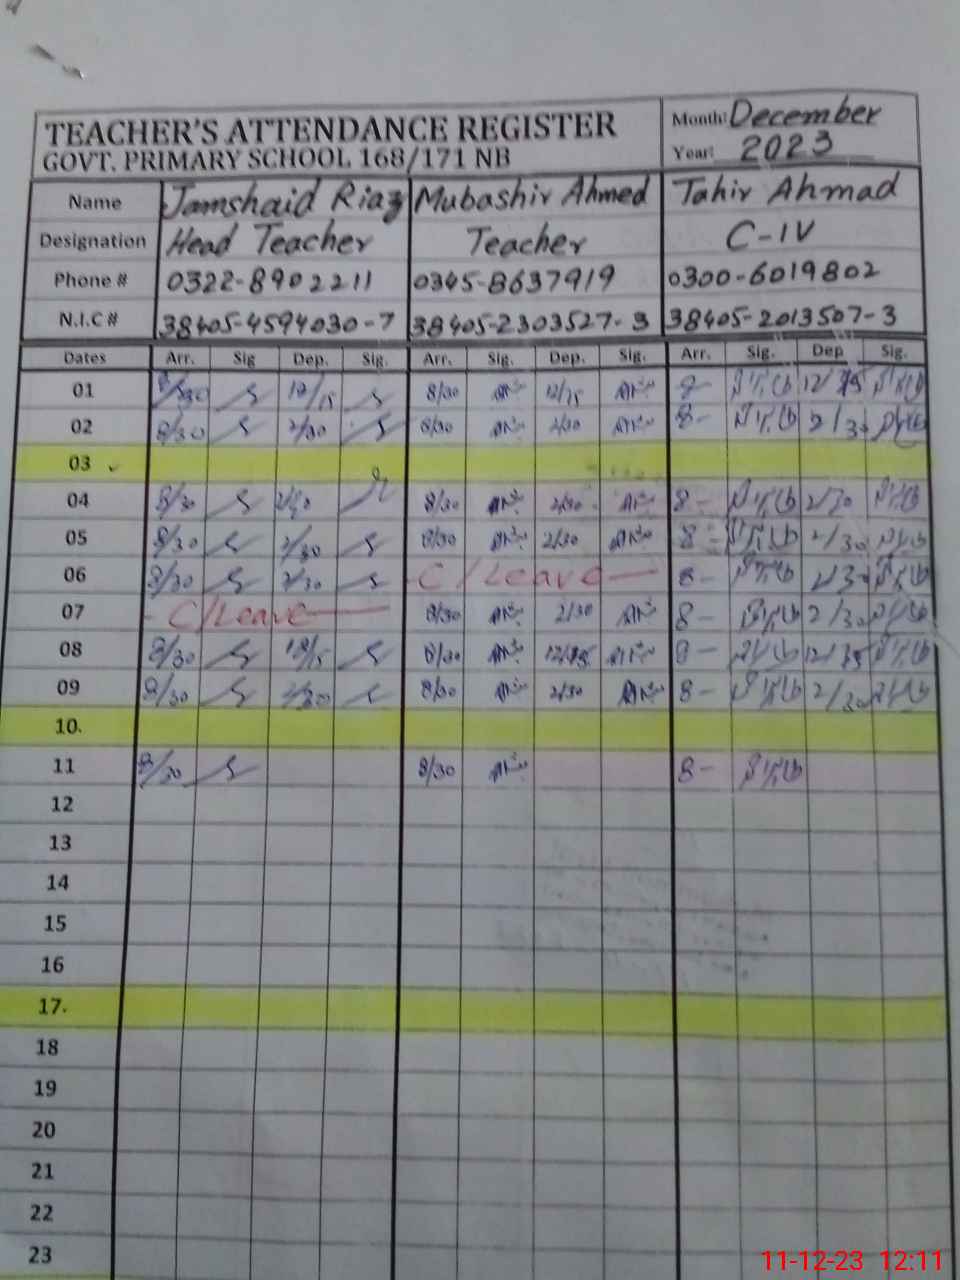 TEACHER'S ATTENDANCE REGISTER
GOVT. PRIMARY SCHOOL 168/171 NB
Month: December
Year: 2023
Name Jamshaid Riaz Mubashir Ahmed Tahir Ahmad
Designation Head Teacher Teacher C-IV
Phone # 0322-8902211 0345-8637919 0300-6019802
N.I.C # 38405-4594030-7 38405-2303527-3 38405-2013507-3
Dates Arr. Sig Dep. Sig. Arr. Sig. Dep. Sig. Arr. Sig. Dep Sig.
01 8/30 12/15 8/30 12/15 8- 12/15
02 8/30 2/30 8/30 2/30 8- 2/30
03
04 8/30 2/30 8/30 2/30 8- 2/30
05 8/30 2/30 8/30 2/30 8- 2/30
06 8/30 2/30 C/Leave 8- 2/30
07 C/Leave 8/30 2/30 8- 2/30
08 8/30 12/15 8/30 12/15 8- 12/15
09 8/30 2/30 8/30 2/30 8- 2/30
10.
11 8/30 8/30 8-
12
13
14
15
16
17.
18
19
20
21
22
23
11-12-23 12:11